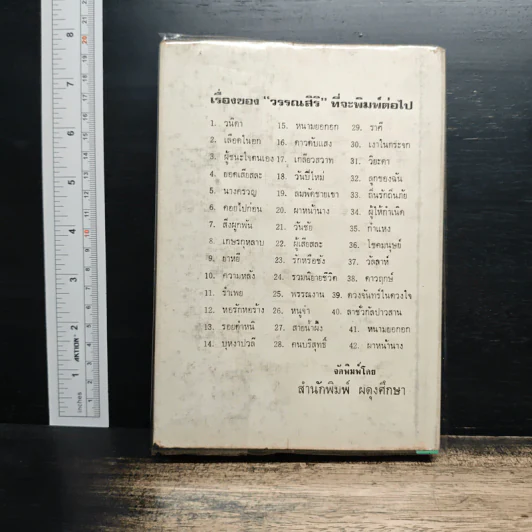 เรื่องของ "วรรณสิริ" ที่จะพิมพ์ต่อไป
1. วนิดา
2. เลือดในอก
3. ผู้ชนะใจตนเอง
4. ยอดเสียสละ
5. นางครวญ
6. คอยไปก่อน
7. สิ่งผูกพัน
8. เกษรกุหลาบ
9. ยาหยี
10. ความหลัง
11. รำเพย
12. หอรักหอร้าง
13. รอยตำหนิ
14. บุหงาปาวลี
15. หนามยอกอก
16. ดาวดับแสง
17. เกลียวสวาท
18. วันปีใหม่
19. ลมพัดชายเขา
20. ผาหน้านาง
21. วันชัย
22. ผู้เสียสละ
23. รักหรือชัง
24. รวมนิยายชีวิต
25. พรรณงาน
26. หนูจ๋า
27. สายน้ำผึ้ง
28. คนบริสุทธิ์
29. ราศี
30. เงาในกระจก
31. วิยะดา
32. ลูกของฉัน
33. ถิ่นรักถิ่นภัย
34. ผู้ให้กำเนิด
35. กำแหง
36. โชคมนุษย์
37. วัลลาห์
38. ดาวฤกษ์
39. ดวงจันทร์ในดวงใจ
40. ลาชั่วกัลปาวสาน
41. หนามยอกอก
42. ผาหน้านาง
จัดพิมพ์โดย
สำนักพิมพ์ ผดุงศึกษา